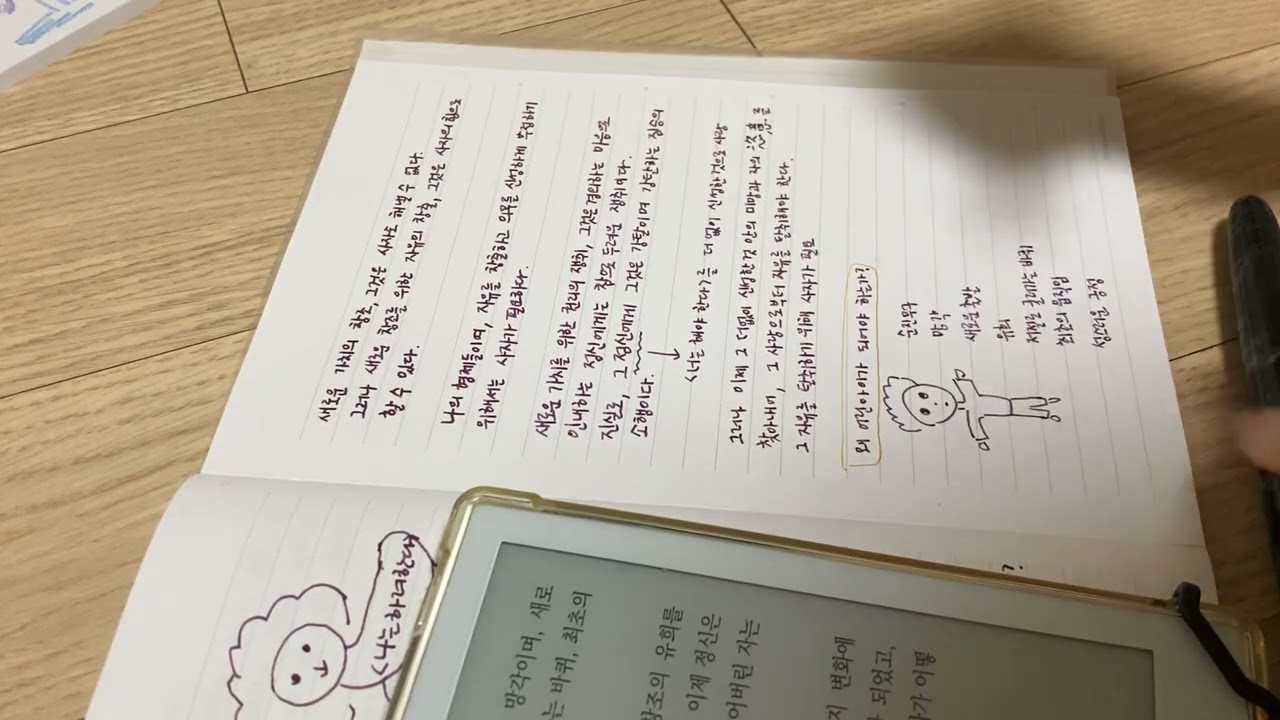 새로운 가치의 창조, 그것은 사자도 해낼 수 없다.
그러나 새로운 창조를 위한 자유의 창출, 그것은 사자의 힘으로
할 수 있다.
나의 형제들이여, 자유를 창출하고 의무를 신성하게 부정하기
위해서는 사자가 필요하다.
새로운 가치를 위한 권리의 쟁취, 그것은 경외하는 마음으로
인내하는 정신에게는 참으로 두려운 쟁취이다.
진실로, 그 정신에게 그것은 강탈이며 강탈하는 짐승의
소행이다.
<너는 해야 한다>를 더 없이 신성한 것으로 사랑
그러나 이제 그 더없이 신성한 것 안의 미망과 자의 를
찾아내며, 그 사랑으로부터 자유를 탈취해야 한다.
그 자유를 탈취하기 위해 사자가 필요
왜 어린아이가 되어야 하는가?
순진무구
망각
새로운 출발
유희
저절로 굴러가는 바퀴
최초의 움직임
성스러운 긍정
<나는 하려한다
?
망각이며, 새로
는 바퀴, 최초의
창조의 유희를
이제 정신은
어버린 자는
지 변화에
되었고,
가 어떻